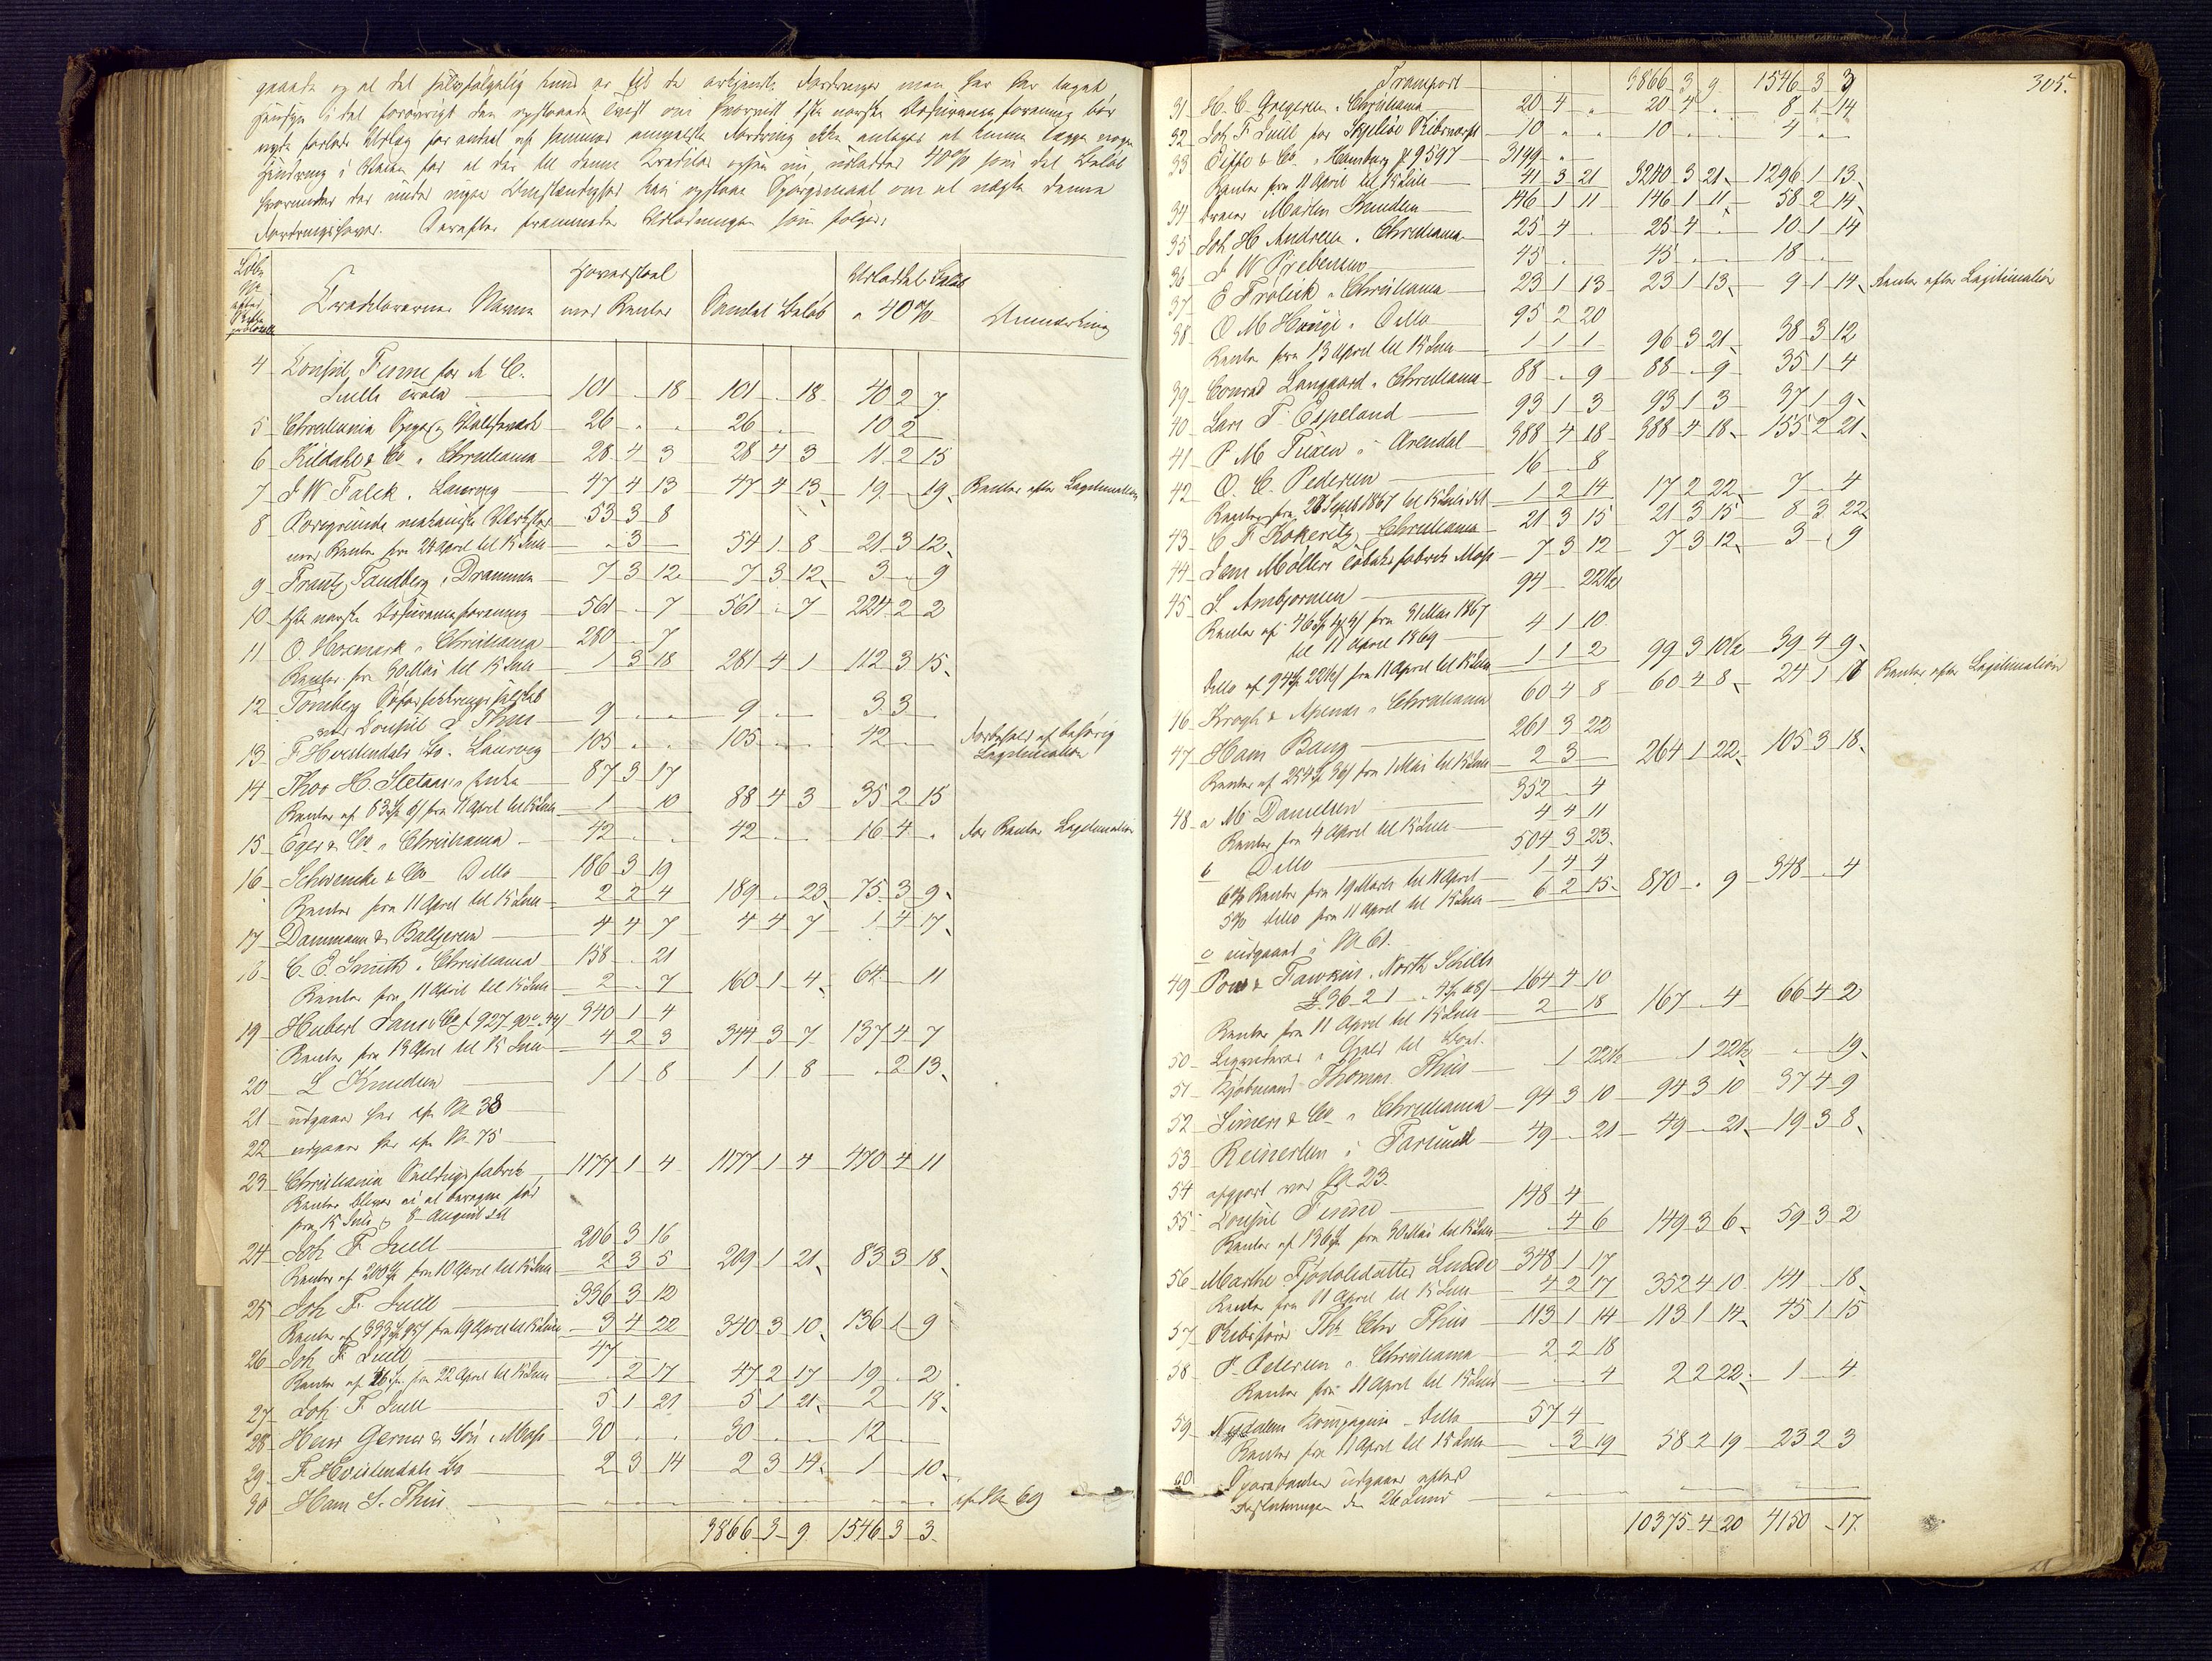 og at det selvfølgelig kun er til de erkjendte Fordringer man har her taget
Hensyn i det forøvrigt den opstaaede Tvist om hvorvidt 1ste norske Assuranceforening bør
Udlæg for andel af samme anmeldte Fordring ikke antages at kunne lægge nogen
Hindring i Veien for at der til denne Kreditor ogsaa nu udlodder 40% som det Beløb
hvorunder der under ingen Omstændighed kan opstaae Spørgsmaal om at nægte denne
Fordringshaver. Derefter fremmedes Udlodningen som følger:
Løbe No efter Skifteprotocollen
Creditorernes Navne
Hovedstoel med Renter
Samlet Beløb
Udloddet Beløb a 40%
Anmærkning
4 Consul Fenne for A C.
Juells Enke 101 . 18 101 . 18 40 2 7
5 Christiania 26 . . 26 . . 10 2
6 Kildahl & Co i Christiania 28 4 3 28 4 3 11 2 15
7 J W Falck i Laurvig 47 4 13 47 4 13 19 . 19 Renter efter Legitimation
8 Porsgrunds mekaniske Værksted 53 3 8
med Renter fra 24 April til 15 Juli . 3 54 1 8 21 3 12
9 Frantz Tandberg i Drammen 7 3 12 7 3 12 3 . 9
10 1ste norske Assuranceforening 561 . 7 561 . 7 224 2 2
11 O. Horemark i Christiania 280 . 7
Renter fra 30 Mai til 15 Juli 1 3 18 281 4 1 112 3 15
12 Tønsberg Søforsikringsselskab
ved Consul J Thiis 9 . . 9 . . 3 3 .
13 F Hvistendals Bo i Laurvig 105 . . 105 . . 42 . . Forbehold af behørig Legitimation
14 Thor H. Stetans Enke 87 3 17
Renter af 83 Sp 6 s fra 11 April til 15 Juli 1 . 10 88 4 3 35 2 15
15 Eger & Co i Christiania 42 . . 42 . . 16 4 . for Renter Legitimation
16 Schwencke & Co Ditto 186 3 19
Renter fra 11 April til 15 Juli 2 2 4 189 . 23 75 3 9
17 Dammann & Baltzersen 4 4 7 4 4 7 1 4 17
18 C. E. Smith i Christiania 158 . 21
Renter fra 11 April til 15 Juli 2 . 7 160 1 4 64 . 11
19 Hubert Jans & Co 927 340 1 4
Renter fra 13 April til 15 Juli 4 2 3 344 3 7 137 4 7
20 L Knudsen 1 1 8 1 1 8 . 2 13
21 udgaaer her cfr No 38
22 udgaaer her cfr No 75
23 Christiania Fabrik 1177 1 4 1177 1 4 470 4 11
Renter bliver ei at beregne for
fra 15 Juli 8 August
24 Joh F. Juell 206 3 16
Renter af 200 Sp fra 10 April til 15 Juli 2 3 5 209 1 21 83 3 18
25 Joh F. Juell 336 3 12
Renter af 333 Sp fra 19 April til 15 Juli 3 4 22 340 3 10 136 1 9
26 Joh F. Juell 47
Renter af 46 Sp fra 22 April til 15 Juli . 2 17 47 2 17 19 . 2
27 Joh F. Juell 5 1 21 5 1 21 2 . 18
28 Herr Gerner & Søn i Moss 30 . . 30 . . 12 . .
29 F. Hvistendals Bo 2 3 14 2 3 14 1 . 10
30 Ham S. Thiis cfr No 69
3866 3 9 1546 3 3
305.
Transport 3866 3 9 1546 3 3
31 H. C. Gregersen i Christiania 20 4 . 20 4 . 8 1 14
32 Joh F Juell for Skibsværft 10 . . 10 . . 4 . .
33 & Co i Hamburg 9597 3199 . .
Renter fra 11 April til 15 Juli 41 3 21 3240 3 21 1296 1 13
34 Dreier Martin Knudsen 146 1 11 146 1 11 58 2 14
35 Joh H Andresen i Christiania 25 4 . 25 4 . 10 1 14
36 J W Prebensen 45 . . 45 . . 18 . .
37 E Frølich i Christiania 23 1 13 23 1 13 9 1 14 Renter efter Legitimation
38 O M Hauge i Ditto 95 2 20
Renter fra 13 April til 15 Juli 1 1 1 96 3 21 38 3 12
39 Conrad Langaard i Christiania 88 . 9 88 . 9 35 1 4
40 Lars T. Espeland 93 1 3 93 1 3 37 1 9
41 P M Tuxen i Arendal 388 4 18 388 4 18 155 2 21
42 O. C. Pedersen 16 . 8
Renter fra 28 Septb 1867 til 15 Juli 1 2 14 17 2 22 7 . 4
43 C F Kokeritz Christiania 21 3 15 21 3 15 8 3 22
44 Jens Møllers Tobaksfabrik Moss 7 3 12 7 3 12 3 . 9
45 S. Ambjørnsen 94 . 22½
Renter af 46 Sp fra 31 Mai 1867
til 11 April 1869 4 1 10
Ditto af 94 Sp 22½ s fra 11 April til 15 Juli 1 1 2 99 3 10½ 39 4 9
46 Krogh & Apenes i Christiania 60 4 8 60 4 8 24 1 18 Renter efter Legitimation
47 Hans Bang 261 3 22
Renter af 254 Sp fra 1 Mai til 15 Juli 2 3 264 1 22 105 3 18
48 a M. Danielsen 352 . 4
Renter fra 4 April til 15 Juli 4 4 11
b Ditto 504 3 23
6% Renter fra 19 Marts til 11 April 1 4 4
5% ditto fra 11 April til 15 Juli 6 2 15 870 . 9 348 . 4
c udgaaet i No 61.
49 Pow & Fawcus i North Schields
£ 36 2 1 164 4 10
Renter fra 11 April til 15 Juli 2 . 18 167 . 4 66 4 2
50 i Gjæld til . 1 22½ . 1 22½ . . 19
51 Kjøbmand Thomas Thiis 94 3 10 94 3 10 37 4 9
52 Simers & Co i Christiania 49 . 21 49 . 21 19 3 8
53 Reinertsen i Farsund
54 afgjort ved No 23.
55 Consul Fenne 148 4
Renter af 136 Sp fra 30 Mai til 15 Juli . 4 6 149 3 6 59 3 2
56 Marthe Tjodolsdatter Lunde 348 1 17
Renter fra 11 April til 15 Juli 4 2 17 352 4 10 141 . 18
57 Skibsfører Thos Chr Thiis 113 1 14 113 1 14 45 1 15
58 P. Pedersen i Christiania 2 2 18
Renter fra 11 April til 15 Juli . . 4 2 2 22 1 . 4
59 Nydalens Kompagnie Ditto 57 4
Renter fra 11 April til 15 Juli . 3 19 58 2 19 23 2 3
60 Sparebanken udgaaer efter
Beslutningen den 26 Juni
10375 4 20 4150 . 17